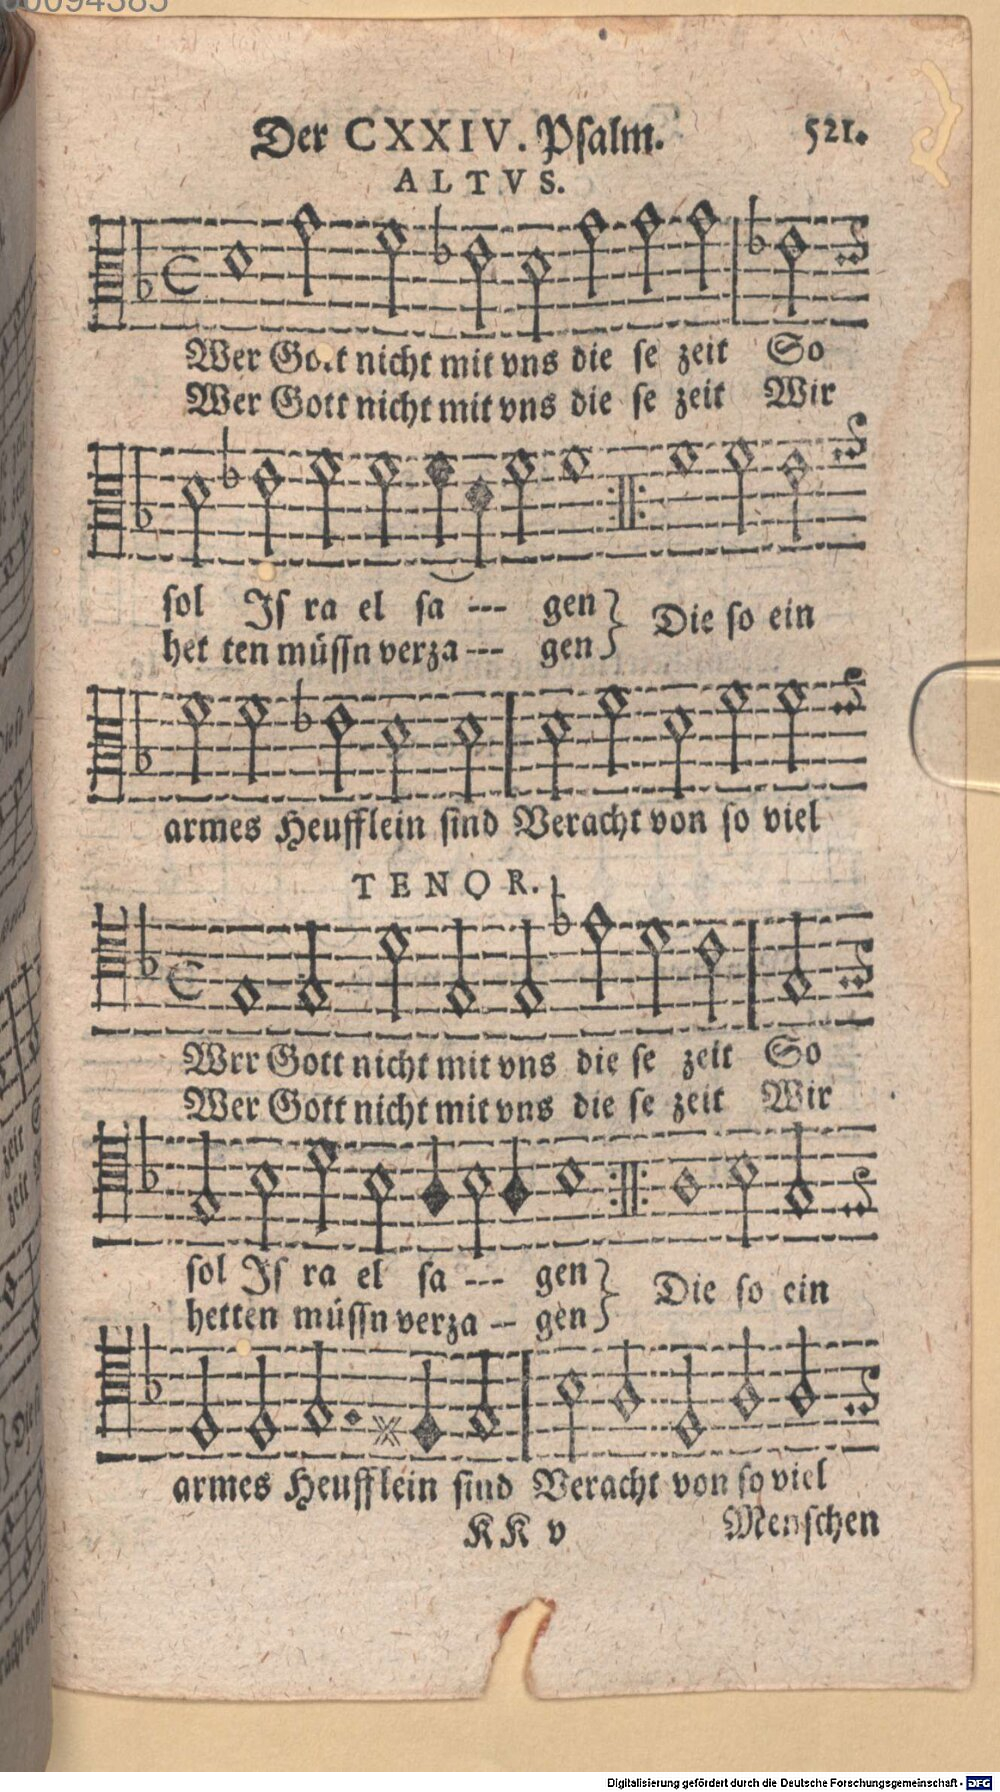 Der CXXIV. Psalm. 521.
ALTVS.
Wer Gott nicht mit vns die se zeit So
Wer Gott nicht mit vns die se zeit Wir
sol Is ra el sa --- gen}
het ten müssn verza --- gen} Die so ein
armes Heufflein sind Veracht von so viel
TENOR.
Wrr Gott nicht mit vns die se zeit So
Wer Gott nicht mit vns die se zeit Wir
sol Is ra el sa --- gen}
hetten müssn verza -- gen} Die so ein
armes Heufflein sind Veracht von so viel
KK v Menschen
Digitalisierung gefördert durch die Deutsche Forschungsgemeinschaft - DFG